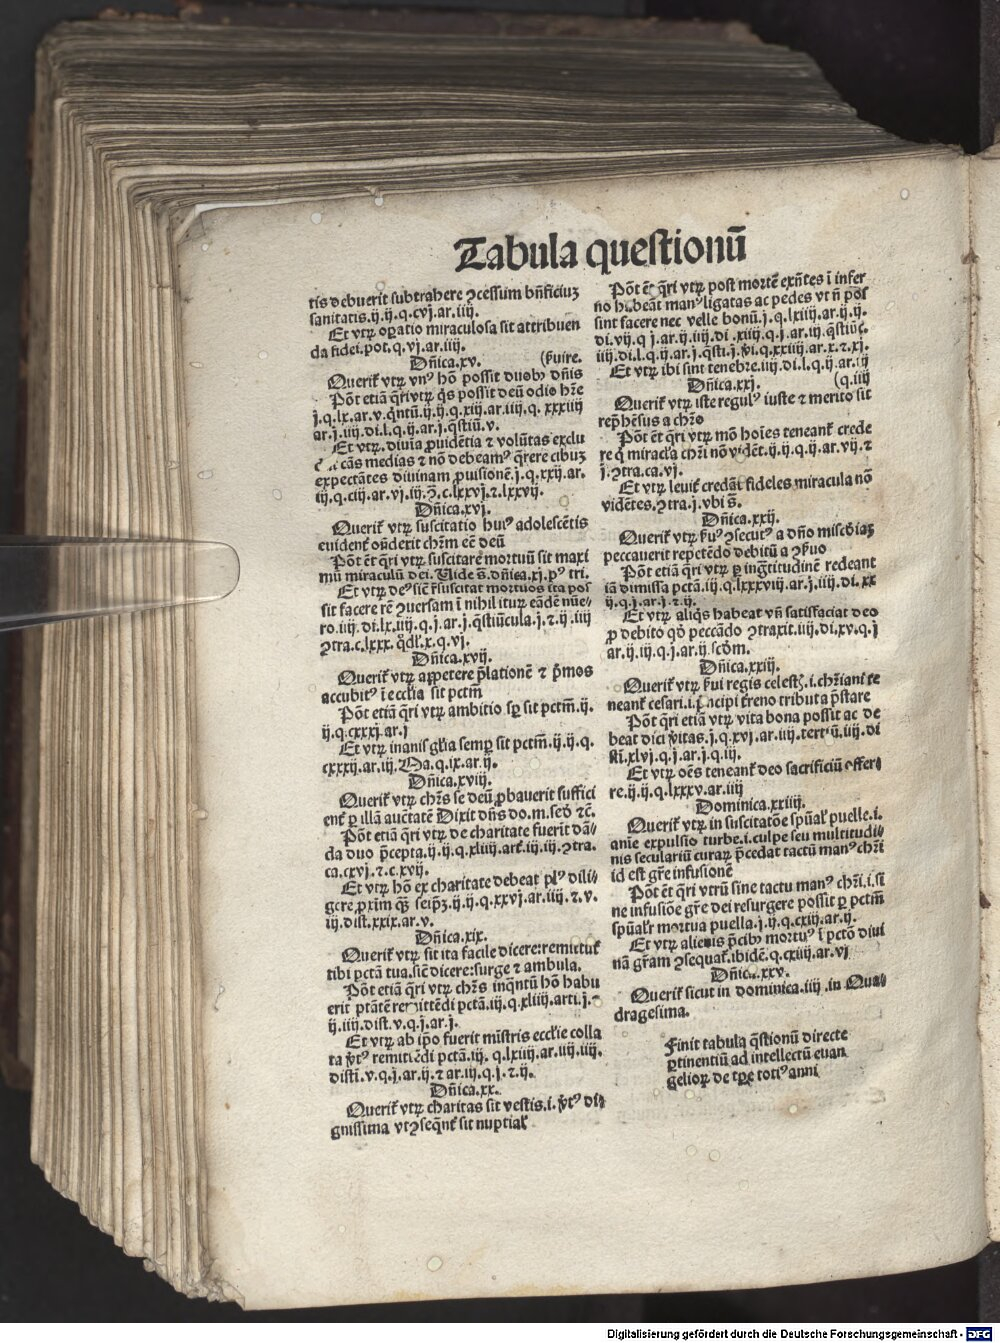 Tabula questionū
tis debuerit subtrahere ꝯcessum bn̄ficiuȝ
sanitatis.ij.ij.q.cvj.ar.iiij.
Et vtꝝ oꝑatio miraculosa sit attribuen
da fidei.pot.q.vj.ar.iiij.
Dn̄ica.xv. (ẜuire.
Querit̄ vtꝝ vnꝰ hō possit duobꝫ dn̄is
Pōt etiā q̄ri vtꝝ q̄s possit deū odio hr̄e
j.q.lx.ar.v.q̄ntū.ij.ij.q.xiij.ar.iiij.q. xxxiiij
ar.j.iiij.di.l.q.ij.ar.j.q̄stiū.v.
Et vtꝝ diuīa ꝓuidētia ⁊ volūtas exclu
cās medias ⁊ nō debeamꝰ q̄rere cibuȝ
expectātes diuinam ꝓuisionē.j.q.xxij.ar.
iij.q.ciij.ar.vj.iij.ꝯ̄.c.lxxvj.⁊.lxxvij.
Dn̄ica.xvj.
Querit̄ vtꝝ suscitatio huiꝰ adolescētis
euident̄ on̄derit chr̄m eē deū
Pōt ēt q̄ri vtꝝ suscitare mortuū sit maxi
mū miraculū dei. Uide s̄.dn̄ica.xj.pꝰ tri.
Et vtꝝ deꝰ sic̄ r̄suscitat mortuos ita pos
sit facere rē ꝯuersam ī nihil iterꝝ eādē nūe⸗
ro.iiij.di.lx.iiij.q.j.ar.j.q̄stiūcula.j.⁊.ij.iiij
ꝯtra.c.lxxx. q̄dł.x.q.vj.
Dn̄ica.xvij.
Querit̄ vtꝝ appetere p̄lationē ⁊ p̄mos
accubitꝰ ī ecclīa sit pctm̄
Pōt etiā q̄ri vtꝝ ambitio sꝑ sit pctm̄.ij.
ij.q.cxxxj.ar.j
Et vtꝝ inanis gl̄ia semꝑ sit pctm̄.ij.ij.q.
cxxxij.ar.iij. Ma.q.ix.ar.ij.
Dn̄ica.xviij.
Querit̄ vtꝝ chr̄s se deū ꝓbauerit suffici
ent̄ ꝑ illā auc̄tatē Dixit dn̄s do.m.seꝺ̄ ⁊c̄.
Pōt etiā q̄ri vtꝝ de charitate fuerīt dā⸗
da duo p̄cepta.ij.ij.q.xliiij.art̄.ij.iij.ꝯtra.
ca.cxvj.⁊.c.xvij.
Et vtꝝ hō ex charitate debeat plꝰ dili⸗
gere ꝓxim̄ q̄ꝫ seip̄ȝ.ij.ij.q.xxvj.ar.iiij.⁊.v.
iij.dist.xxix.ar.v.
Dn̄ica.xix.
Querit̄ vtꝝ sit ita facile dicere:remittūt̄
tibi pctā tua.sic̄ dicere:surge ⁊ ambula.
Pōt etiā q̄ri vtꝝ chr̄s inq̄ntū hō habu
erit ptātē remittēdi pctā.iij.q.xliiij.arti.j.⸗
ij.iiij.dist.v.q.j.ar.j.
Et vtꝝ ab ip̄o fuerit mīstris eccl̄ie colla
ta v̄tꝰ remittēdi pctā.iij. q.lxiiij.ar.iij.iiij.
disti.v.q.j.ar.ij.⁊ ar.iij.q.j.⁊.ij.
Dn̄ica.xx.
Querit̄ vtꝝ charitas sit vestis.i.v̄tꝰ di⸗
gnissima vtꝫ seq̄nt̄ sit nuptial̄
Pōt ēt q̄ri vtꝝ post mortē exn̄tes ī infer
no habeāt manꝰ ligatas ac pedes vt n̄ pos
sint facere nec velle bonū.j.q.lxiiij.ar.ij.ij.
di.vij.q j.ar.ij.iiij.di .xiiij.q.j.ar.iij.q̄stiūc̄.
iiij.di.l.q.ij.ar.j.q̄sti.j.v̄i.q.xxiiij.ar.x.⁊.xj.
Et vtꝝ ibi sint tenebre.iiij.di.l.q.ij.ar.iij
Dn̄ica.xxj. (q.iiij
Querit̄ vtꝝ iste regulꝰ iuste ⁊ merito sit
rep̄hēsus a chr̄o
Pōt ēt q̄ri vtꝝ mō hoīes teneant̄ crede
re q̄ miracła chr̄i nō vidēt.ij.ij.q.ij.ar.vij.⁊
j.ꝯtra.ca.vj.
Et vtꝝ leuit̄ credāt fideles miracula nō
vidētes.ꝯtra.j.vbi s̄.
Dn̄ica.xxij.
Querit̄ vtꝝ ẜuꝰ ꝯsecutꝰ a dn̄o mīscd̄iaȝ
peccauerit repetēdo debitū a ꝯẜuo
Pōt etiā q̄ri vtꝝ ꝑ ing̃titudinē redeant
iā dimissa pctā.iij.q.lxxxviij.ar.j.iiij.di.xx
ij.q.j.ar.j.⁊.ij.
Et vtꝝ aliq̄s habeat vn̄ satisfaciat deo
ꝓ debito qd̄ peccādo ꝯtraxit.iiij.di.xv.q.j
ar.ij.iij.q.j.ar.ij.scd̄m.
Dn̄ica.xxiij.
Querit̄ vtꝝ ẜui regis celestꝭ.i.chr̄iani te
neant̄ cesari.i.pͥncipi t̄reno tributa p̄stare
Pōt q̄ri etiā vtꝝ vita bona possit ac de
beat dici v̄itas.j.q.xvj.ar.iiij.tertꝰū.iiij.di
sti.xlvj.q.j.ar.j.q.iij.
Et vtꝝ oēs teneant̄ deo sacrificiū offer⸗
re.ij.ij.q.lxxxv.ar.iiij
Dominica.xxiiij.
Querit̄ vtꝝ in suscitatōe spūal̄ puelle.i.
anīe expulsio turbe.i.culpe seu multitudi⸗
nis seculariū curaꝝ p̄cedat tactū manꝰ chr̄i
id est gr̄e infusionē
Pōt ēt q̄ri vtrū sine tactu manꝰ chr̄i.i.si
ne infusiōe gr̄e dei resurgere possit ꝑ pctm̄
spūalr̄ mortua puella.j.ij.q.cxiij.ar.ij.
Et vtꝝ alienis p̄cibꝫ mortuꝰ ī pctō diui
nā gr̄am ꝯsequat̄.ibidē.q.cxiiij.ar.vj
Dn̄ica.xxv.
Querit̄ sicut in dominica.iiij.in Qua⸗
dragesima.
Finit tabula q̄stionū directe
ꝑtinentiū ad intellectū euan
gelioꝝ de tꝑe totiꝰ anni
Digitalisierung gefördert durch die Deutsche Forschungsgemeinschaft - DFG